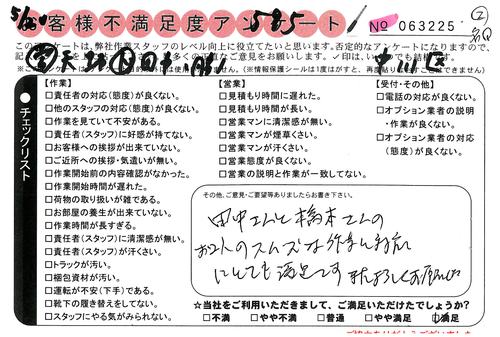 5/30
お客様不満足度アンケート
585
No 063225
このアンケートは、弊社作業スタッフのレベル向上に役立てたいと思います。否定的なアンケートになりますので、
(※情報保護シールは1度はがすと、再度貼りなおすことはできません)
チェックリスト
【作業】
□責任者の対応(態度)が良くない。
□他のスタッフの対応(態度)が良くない。
□作業を見ていて不安がある。
□責任者(スタッフ)に好感が持てない。
□お客様への挨拶が出来ていない。
□ご近所への挨拶・気遣いが無い。
□作業開始前の内容確認がなかった。
□作業開始時間が遅れた。
□荷物の取り扱いが雑である。
□お部屋の養生が出来ていない。
□作業時間が長すぎる。
□責任者(スタッフ)に清潔感が無い。
□責任者(スタッフ)が汗くさい。
□トラックが汚い。
□梱包資材が汚い。
□運転が不安(下手)である。
□靴下の履き替えをしてない。
□スタッフにやる気がみられない。
【営業】
□見積もり時間に遅れた。
□見積もり時間が長い。
□営業マンに清潔感が無い。
□営業マンが煙草くさい。
□営業マンが汗くさい。
□営業態度が良くない。
□営業の説明と作業が一致してない。
【受付・その他】
□電話の対応が良くない。
□オプション業者の説明
・作業が良くない。
□オプション業者の対応
(態度)が良くない。
その他、ご意見・ご要望等ありましたらお書き下さい。
田中さんと橋本さんの
お2人のスムーズな作業と対応
にとても満足です
☆当社をご利用いただきまして、ご満足いただけたでしょうか?
□不満 □やや不満 □普通 □やや満足 ☑満足